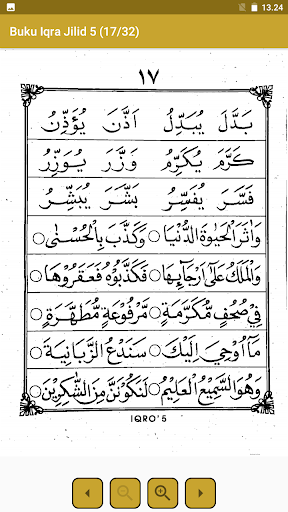 13.24
Buku Iqra Jilid 5 (17/32)
١٧
بَدَّلَ يُبَدِّلُ اَذَّنَ يُؤَذِّنُ
كَرَّمَ يُكَرِّمُ وَزَّرَ يُوَزِّرُ
فَسَّرَ يُفَسِّرُ بَشَّرَ يُبَشِّرُ
وَاٰثَرَ الْحَيٰوةَ الدُّنْيَا ○ وَكَذَّبَ بِالْحُسْنٰى ○
وَالْمَلَكُ عَلٰٓى اَرْجَآئِهَا ○ فَكَذَّبُوْهُ فَعَقَرُوْهَا ○
فِيْ صُحُفٍ مُّكَرَّمَةٍ ○ مَّرْفُوْعَةٍ مُّطَهَّرَةٍ ○
مَآ اُوْحِيَ اِلَيْكَ ○ سَنَدْعُ الزَّبَانِيَةَ ○
وَهُوَ السَّمِيْعُ الْعَلِيْمُ ○ لَنَكُوْنَنَّ مِنَ الشّٰكِرِيْنَ ○
IQRO' 5